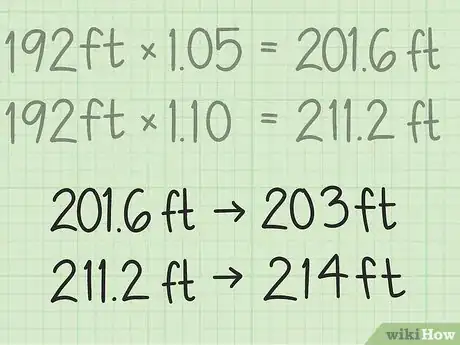 192ft × 1.05 = 201.6 ft
192ft × 1.10 = 211.2 ft
201.6 ft → 203 ft
211.2 ft → 214 ft
wikiHow